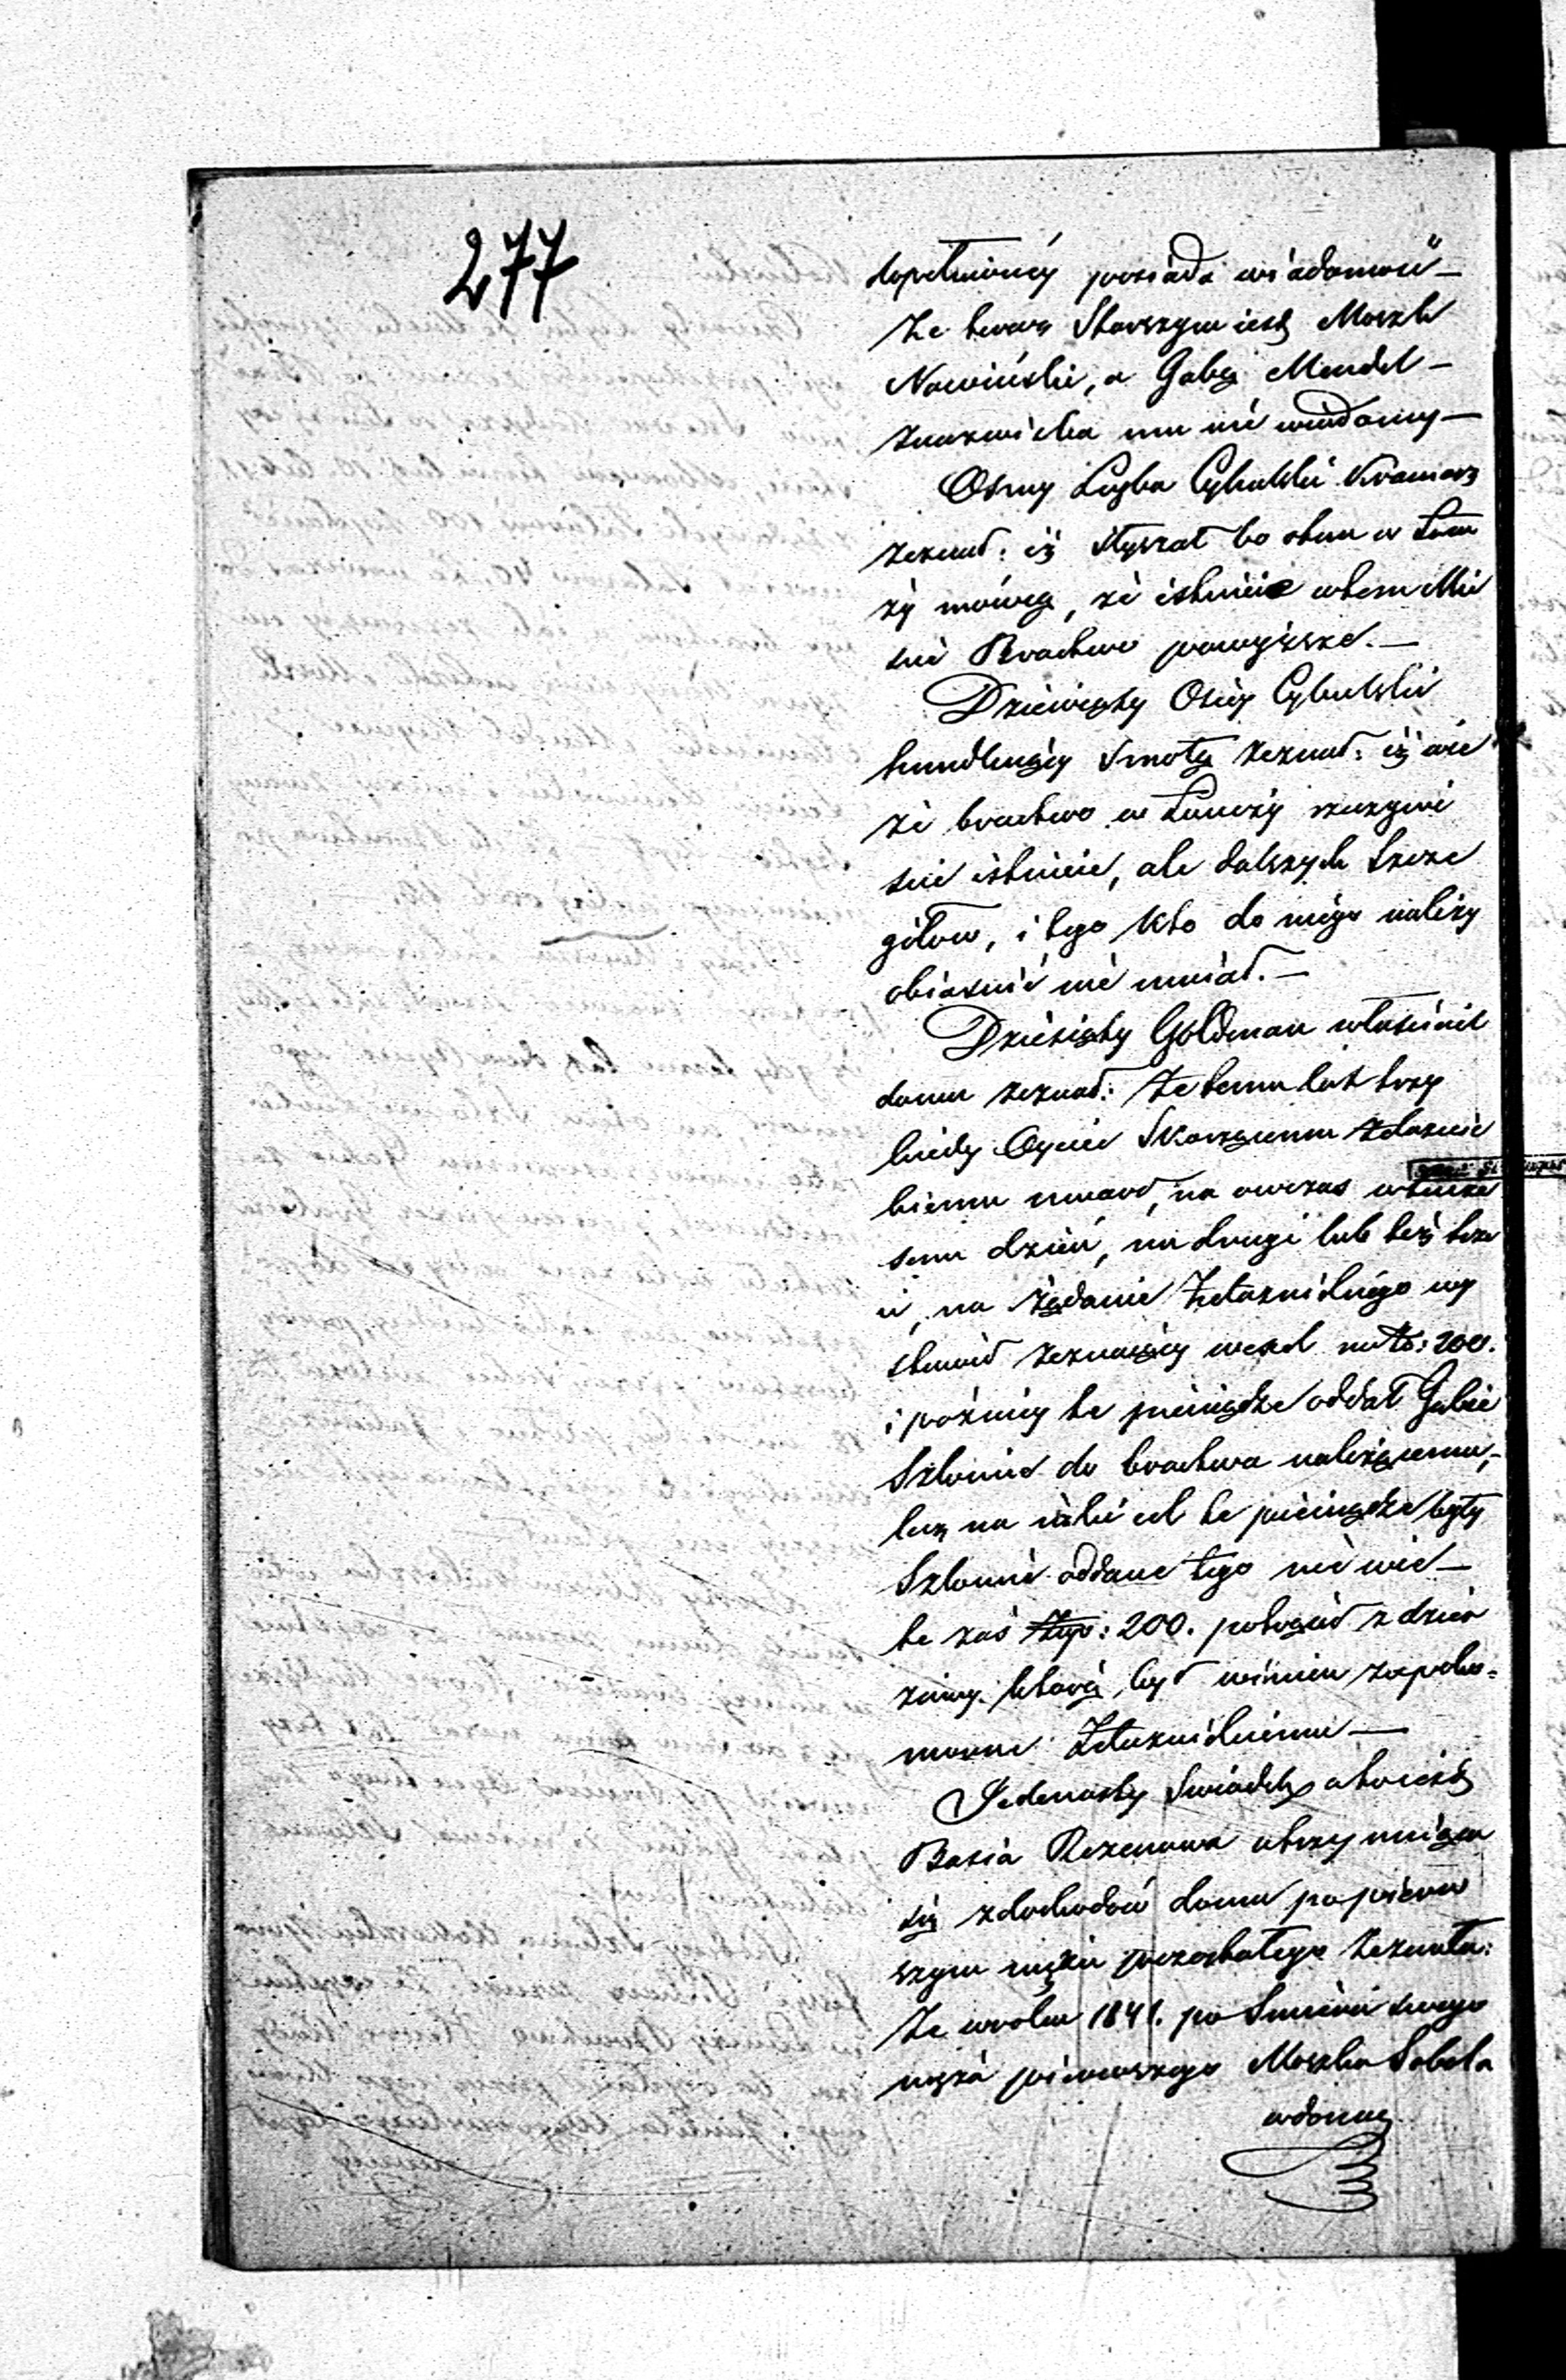 277
dopełnioney posiada wiadomość —
że teraz Starszym iest Moszk
Nowiński, a Gabę Mendel —
Znazwiska mu nie wiadomy —
Osmy Leyba Cybulski Kramarz
zeznał: iż słyszał to obmu w Łom
ży mówią, że istnieie w tem Mie
scie Bractwo powyższe. —
Dziewiąty Osiey Cybulski
handluiący Smołą zeznał: iż wie
że bractwo w Łomży rzeczywi
scie istnieie, ale dalszych szcze
gółow, i tego kto do niego należy
obiasnić nie umiał. —
Dziesiąty Goldman właściciel
domu zeznał: że temu lat trzy
kiedy Oyciec Skarzącemu Żelaznic
kiemu umarł, na owczas w tymże
samym dzień, na drugi lub też trze
ci, na żądanie Żelaznickiego wy
stawił zeznaiący wexel na zł: 200.
i poźniey te pieniądze oddał Gabie
Szlomie do bractwa należącemu,
lecz na iaki cel te pieniądze były
Szlomie oddane tego nie wie —
te zaś złp: 200. potrącił z dzier
żawy którą był winien zapła-
conu Żelaznickiemu —
Jedenasty Swiadek a to iest
Basia Rozenowa utrzymuiąca
się z dochodów domu po pierw
szym mężu pozostałego zeznała:
że w roku 1841. po Smierci swego
męża pierwszego Moszka Sobola